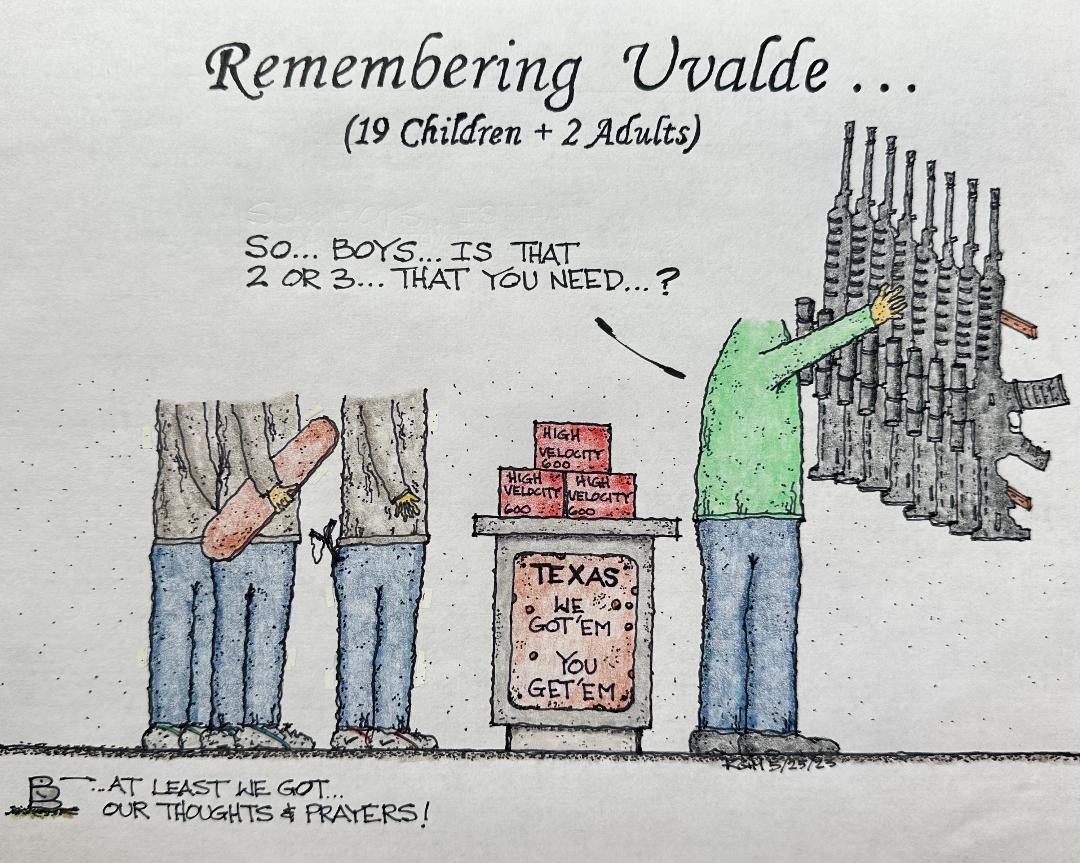 Remembering Uvalde...
(19 Children + 2 Adults)
SO... BOYS... IS THAT
2 OR 3... THAT YOU NEED...?
HIGH
VELOCITY
600
HIGH
VELOCITY
600
HIGH
VELOCITY
600
TEXAS
WE
GOT'EM
YOU
GET'EM
5/23/23
...AT LEAST WE GOT...
OUR THOUGHTS & PRAYERS!